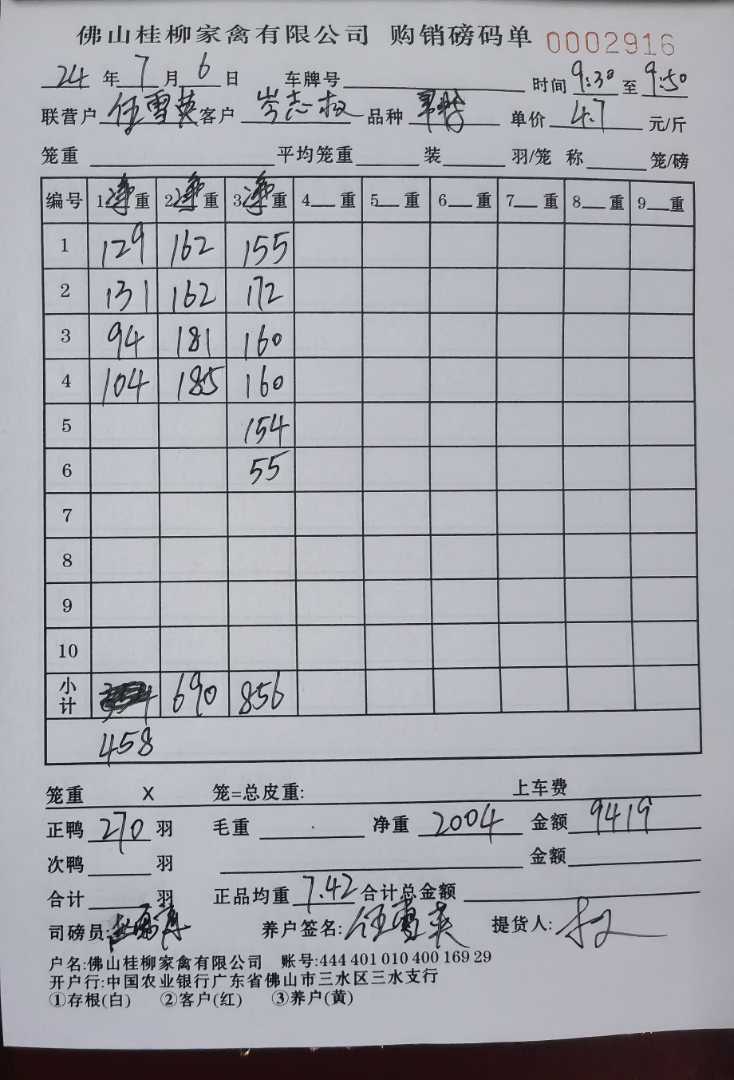 佛山桂柳家禽有限公司 购销磅码单 0002916
24 年 7 月 6 日 车牌号 时间 9:30 至 9:50
联营户 任雪英 客户 岑志权 品种 单价 4.7 元/斤
笼重 平均笼重 装 羽/笼 称 笼/磅
编号 1净重 2净重 3净重 4 重 5 重 6 重 7 重 8 重 9 重
1 129 162 155
2 131 162 172
3 94 181 160
4 104 185 160
5 154
6 55
7
8
9
10
小计 690 856
458
笼重 X 笼=总皮重: 上车费
正鸭 270 羽 毛重 净重 2004 金额 9419
次鸭 羽 金额
合计 羽 正品均重 7.42 合计总金额
司磅员: 养户签名: 任雪英 提货人:
户名:佛山桂柳家禽有限公司 账号:444 401 010 400 169 29
开户行:中国农业银行广东省佛山市三水区三水支行
①存根(白) ②客户(红) ③养户(黄)